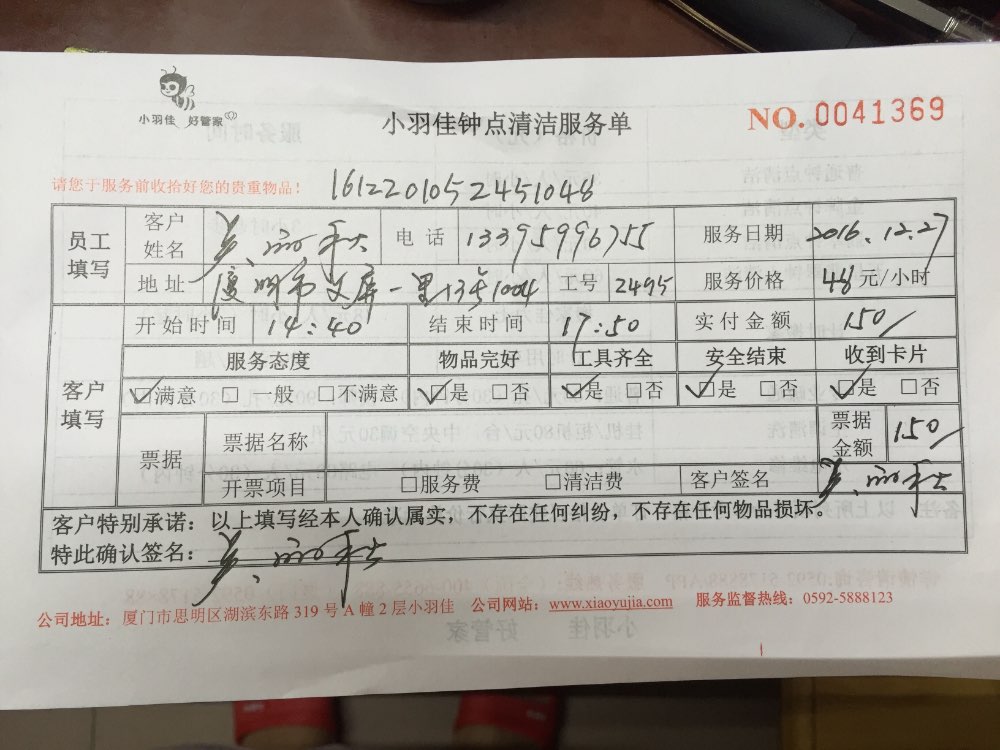 小羽佳 好管家
小羽佳钟点清洁服务单
NO. 0041369
请您于服务前收拾好您的贵重物品！
1612201052451048
员工填写 客户姓名 电话 13395996755 服务日期 2016.12.27
地址 厦明市文屏一里13号1004 工号 2495 服务价格 48元/小时
客户填写 开始时间 14:40 结束时间 17:50 实付金额 150/
服务态度 物品完好 工具齐全 安全结束 收到卡片
☑满意 □一般 □不满意 ☑是 □否 ☑是 □否 ☑是 □否 ☑是 □否
票据 票据名称 票据金额 150/
开票项目 □服务费 □清洁费 客户签名
客户特别承诺：以上填写经本人确认属实，不存在任何纠纷，不存在任何物品损坏。
特此确认签名：
公司地址：厦门市思明区湖滨东路 319 号 A 幢 2 层小羽佳 公司网站：www.xiaoyujia.com 服务监督热线：0592-5888123